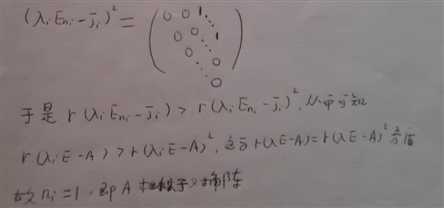 (λᵢEₙᵢ-Jᵢ)² = ( 0 0 1 ⋱
0 0 ⋱ 1
0 ⋱ 0
⋱ 0 )
于是 r(λᵢEₙᵢ-Jᵢ) > r(λᵢEₙᵢ-Jᵢ)², 从而可知
r(λᵢE-A) > r(λᵢE-A)², 这与 r(λᵢE-A)=r(λᵢE-A)²矛盾
故 nᵢ=1, 即 A 相似于对角阵